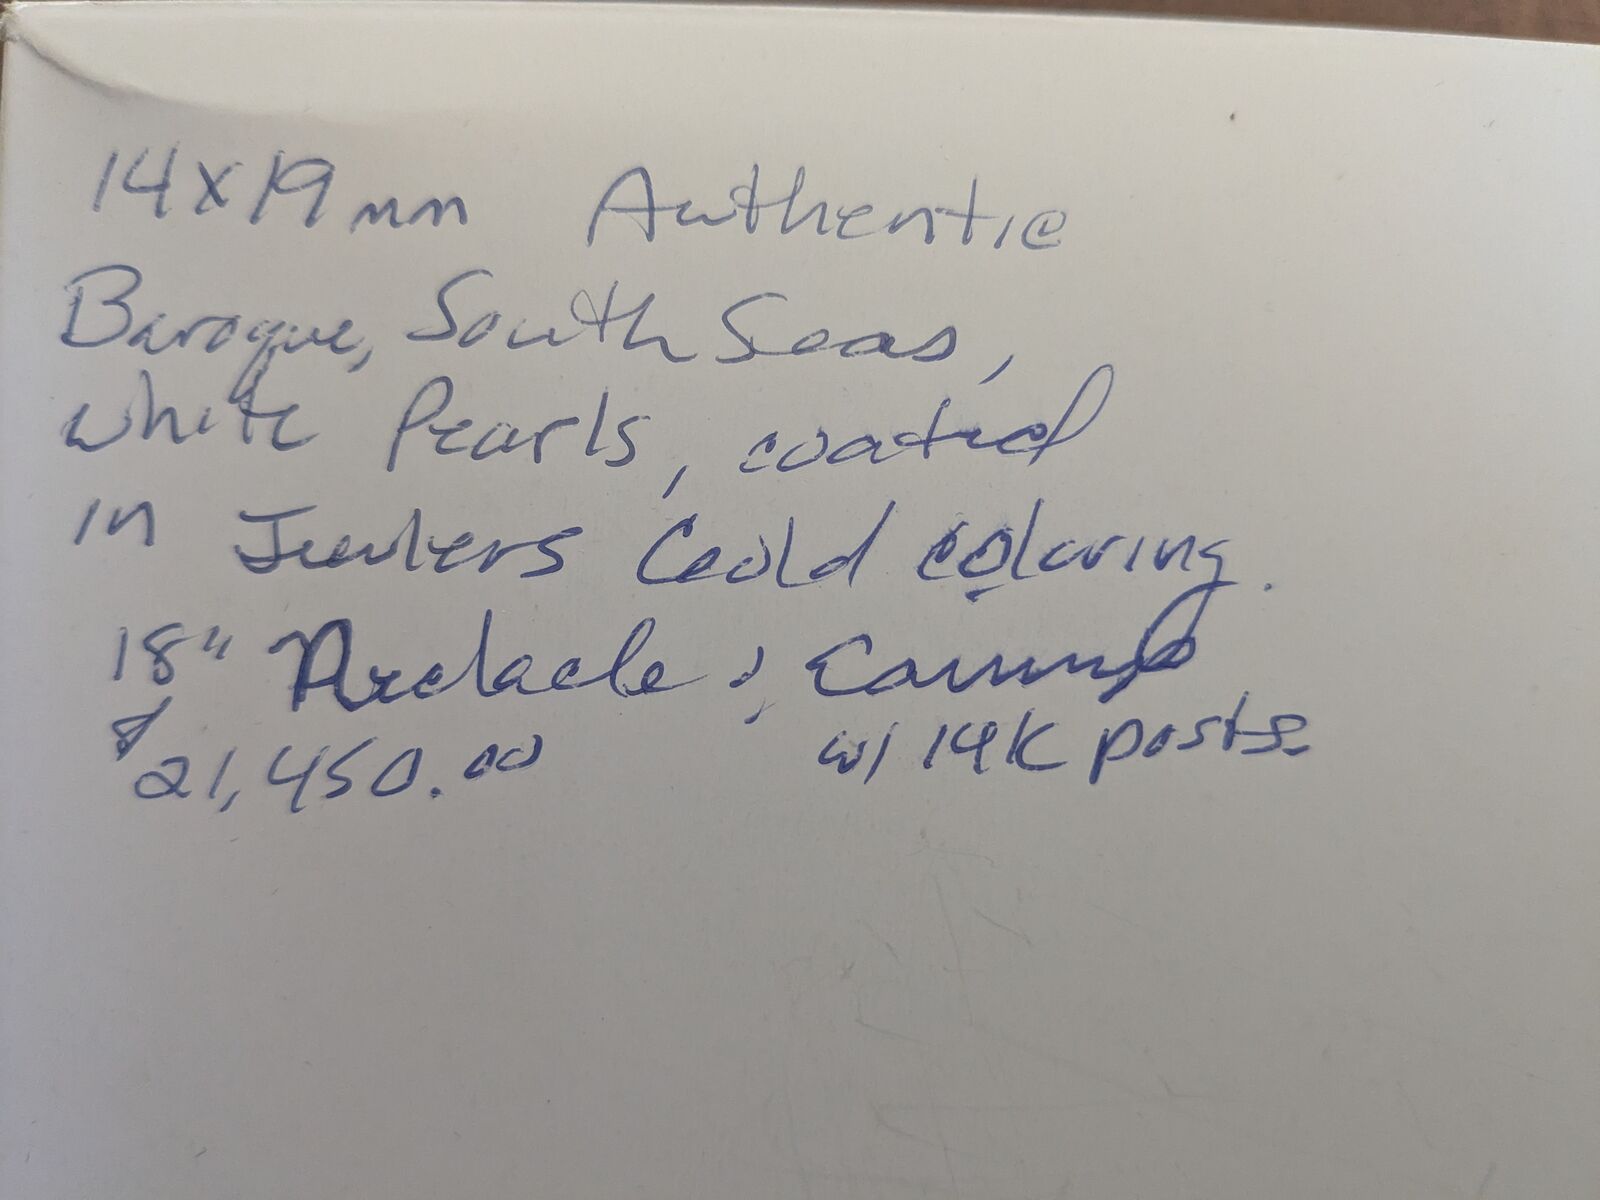 14x19mm Authentic
Baroque, South Seas,
white Pearls, coated
in Jewlers Gold coloring.
18" Necklace & Earrings
$21,450.00 w/ 14K posts